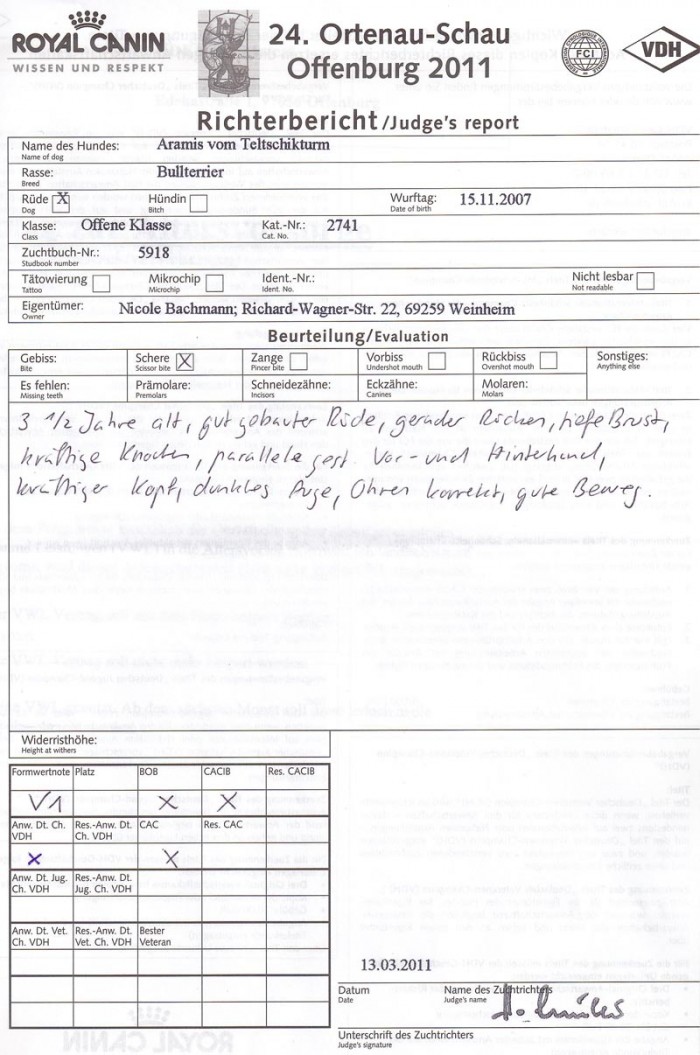 ROYAL CANIN
WISSEN UND RESPEKT
24. Ortenau-Schau
Offenburg 2011
FCI
VDH
Richterbericht /Judge's report
Name des Hundes: Aramis vom Teltschikturm
Name of dog
Rasse: Bullterrier
Breed
Rüde X Hündin Wurftag: 15.11.2007
Dog Bitch Date of birth
Klasse: Offene Klasse Kat.-Nr.: 2741
Class Cat. No.
Zuchtbuch-Nr.: 5918
Studbook number
Tätowierung Mikrochip Ident.-Nr.: Nicht lesbar
Tattoo Microchip Ident. No. Not readable
Eigentümer: Nicole Bachmann; Richard-Wagner-Str. 22, 69259 Weinheim
Owner
Beurteilung/Evaluation
Gebiss: Schere X Zange Vorbiss Rückbiss Sonstiges:
Bite Scissor bite Pincer bite Undershot mouth Overshot mouth Anything else
Es fehlen: Prämolare: Schneidezähne: Eckzähne: Molaren:
Missing teeth Premolars Incisors Canines Molars
3 1/2 Jahre alt, gut gebauter Rüde, gerader Rücken, tiefe Brust,
kräftige Knochen, parallele gest. Vor- und Hinterhand,
kräftiger Kopf, dunkles Auge, Ohren korrekt, gute Beweg.
Widerristhöhe:
Height at withers
Formwertnote Platz BOB CACIB Res. CACIB
V1 X X
Anw. Dt. Ch. VDH Res.-Anw. Dt. Ch. VDH CAC Res. CAC
X X
Anw. Dt. Jug. Ch. VDH Res.-Anw. Dt. Jug. Ch. VDH
Anw. Dt. Vet. Ch. VDH Res.-Anw. Dt. Vet. Ch. VDH Bester Veteran
13.03.2011
Datum Name des Zuchtrichters
Date Judge's name
Unterschrift des Zuchtrichters
Judge's signature
ROYAL CANIN